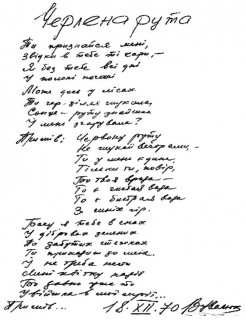 Черлена рута
Ти признайся мені,
Звідки в тебе ті чари, –
Я без тебе всі дні
У полоні печалі
Може десь у лісах
Ти чар-зілля шукала,
Сонце – руту знайшла
І мене зчарувала?
Приспів: Червону руту
Не шукай вечорами, –
Ти у мене єдина,
Тільки ти, повір,
Бо твоя врода –
То є чистая вода
То є бистрая вода
З синіх гір.
Бачу я тебе в снах
У дібровах зелених
По забутих стежках
Ти приходиш до мене
І не треба нести
Мені квітку надії
Бо давно уже ти
Увійшла в мої мрії...
Приспів... 18.XII.70